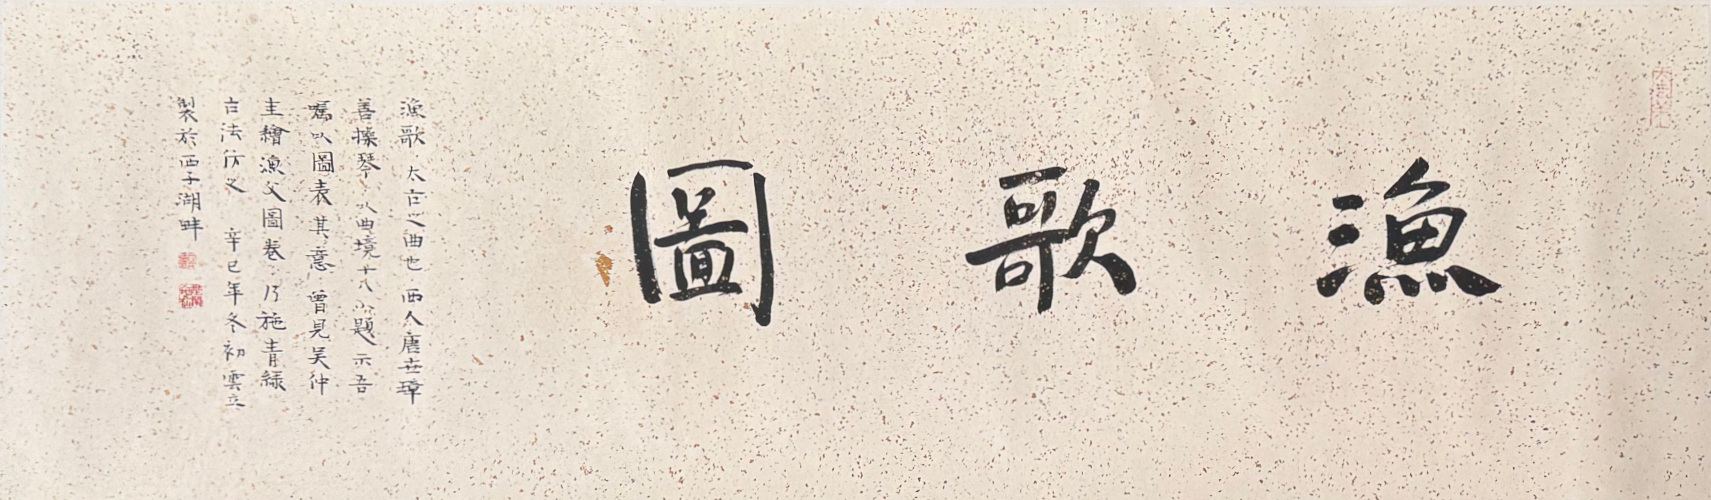 漁歌圖
漁歌 太古之曲也 西人唐世璋
善操琴 以曲境十八小題示吾
囑以圖表其意 曾見吴仲
圭繪漁父圖卷 乃施青緑
古法仿之 辛巳年冬初雲立
製於西子湖畔